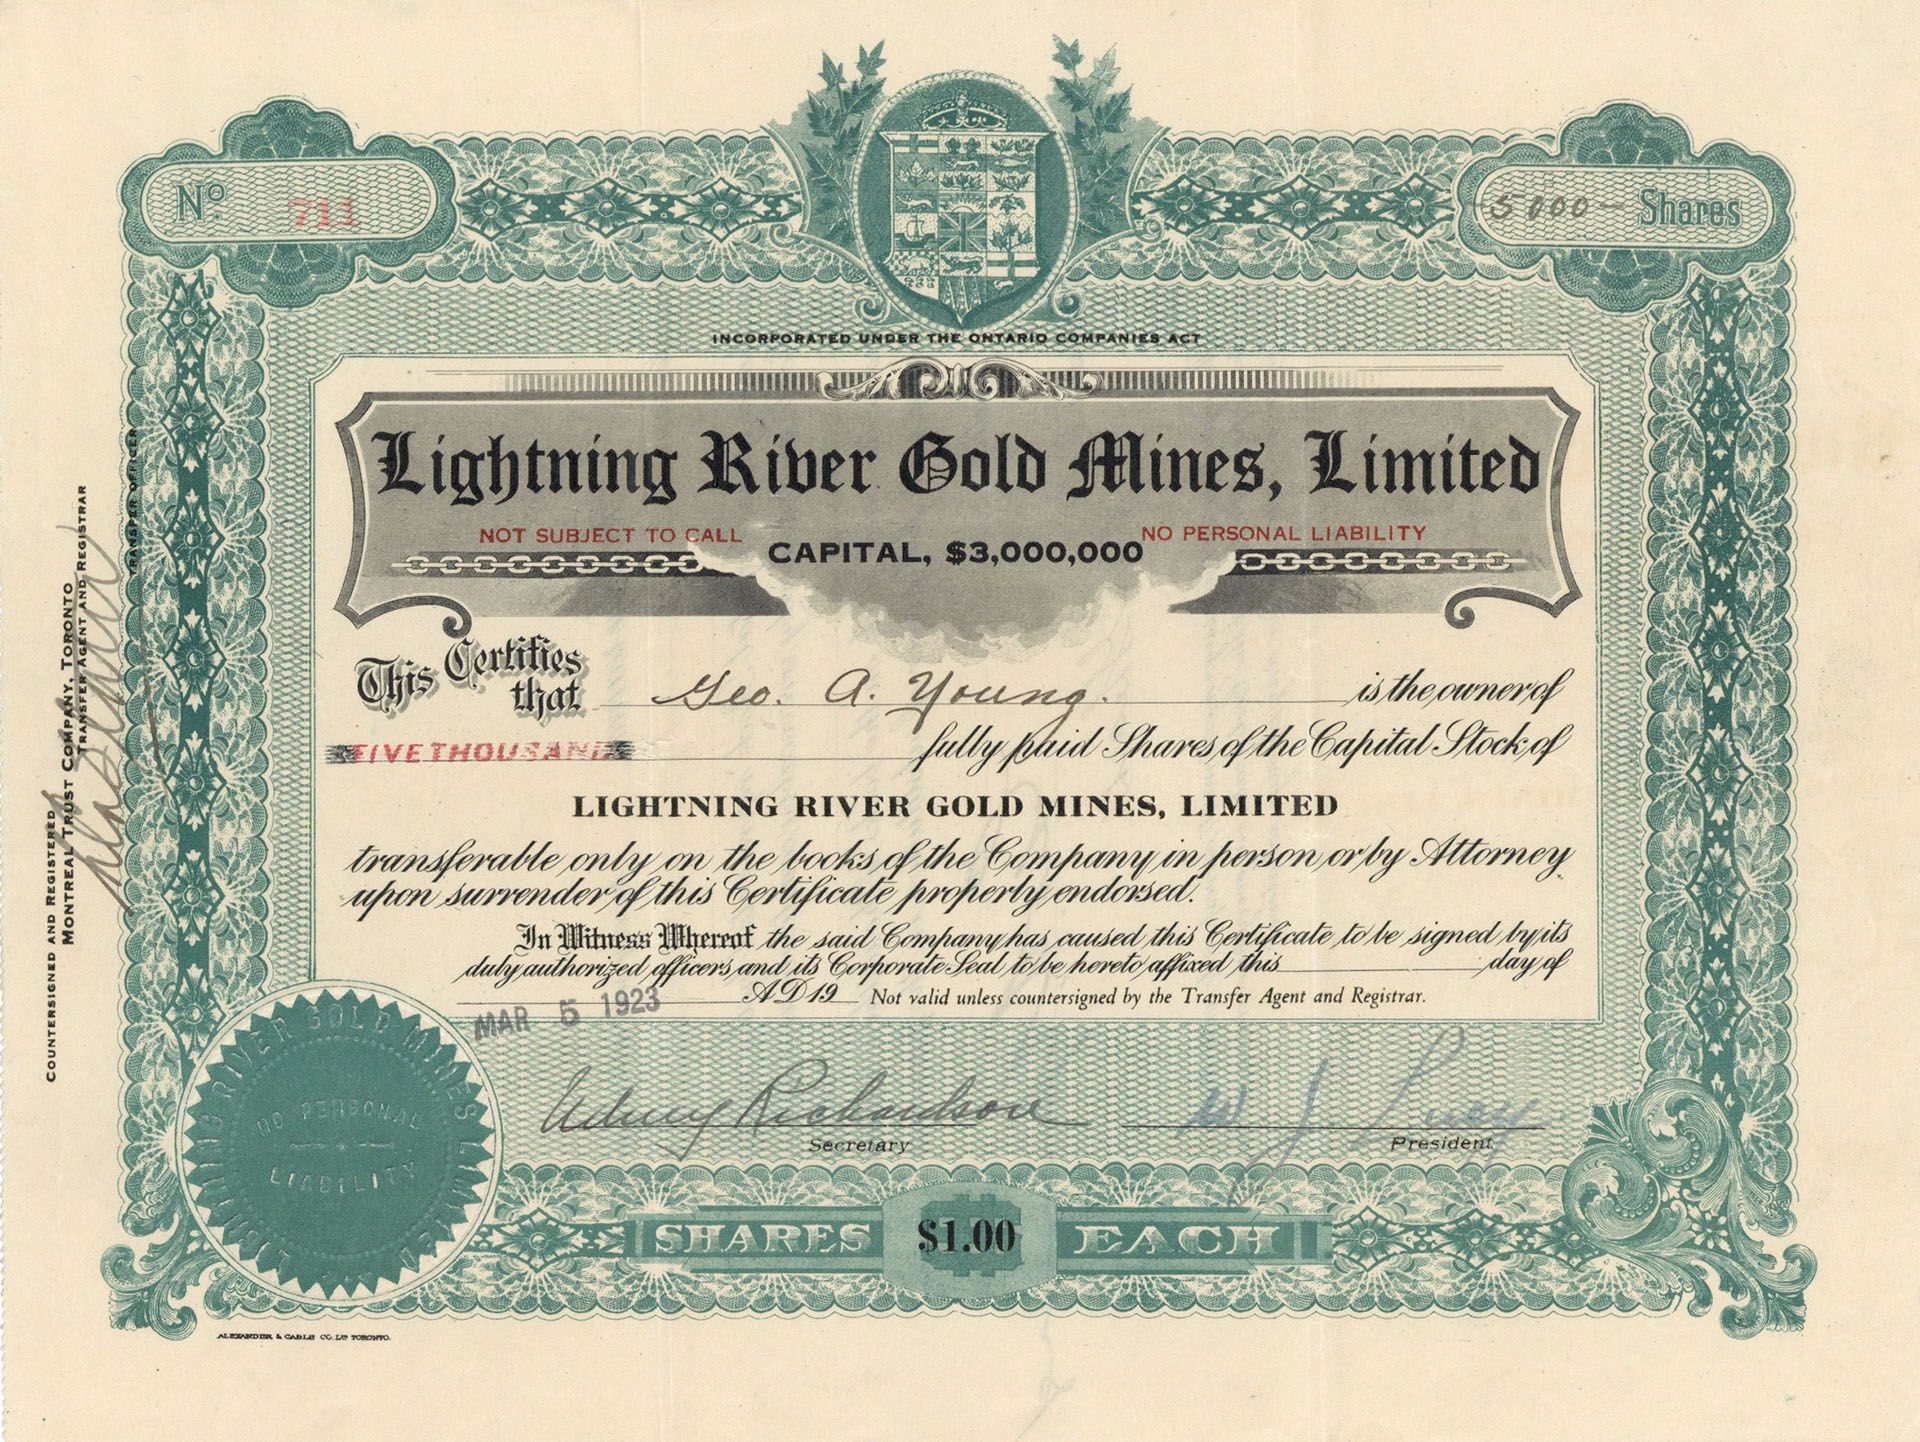 INCORPORATED UNDER THE ONTARIO COMPANIES ACT
No. 711
5000 Shares
Lightning River Gold Mines, Limited
NOT SUBJECT TO CALL
NO PERSONAL LIABILITY
CAPITAL, $3,000,000
This Certifies that Geo. A. Young. is the owner of
FIVE THOUSAND fully paid Shares of the Capital Stock of
LIGHTNING RIVER GOLD MINES, LIMITED
transferable only on the books of the Company in person or by Attorney
upon surrender of this Certificate properly endorsed.
In Witness Whereof the said Company has caused this Certificate to be signed by its
duly authorized officers and its Corporate Seal to be hereto affixed this day of
MAR 5 1923 A D 19 Not valid unless countersigned by the Transfer Agent and Registrar.
Richardson
Secretary
W J
President
SHARES $1.00 EACH
LIGHTNING RIVER GOLD MINES LIMITED
NO PERSONAL
LIABILITY
COUNTERSIGNED AND REGISTERED
MONTREAL TRUST COMPANY, TORONTO
TRANSFER AGENT AND REGISTRAR
TRANSFER OFFICER
ALEXANDER & CABLE CO. LTD TORONTO.